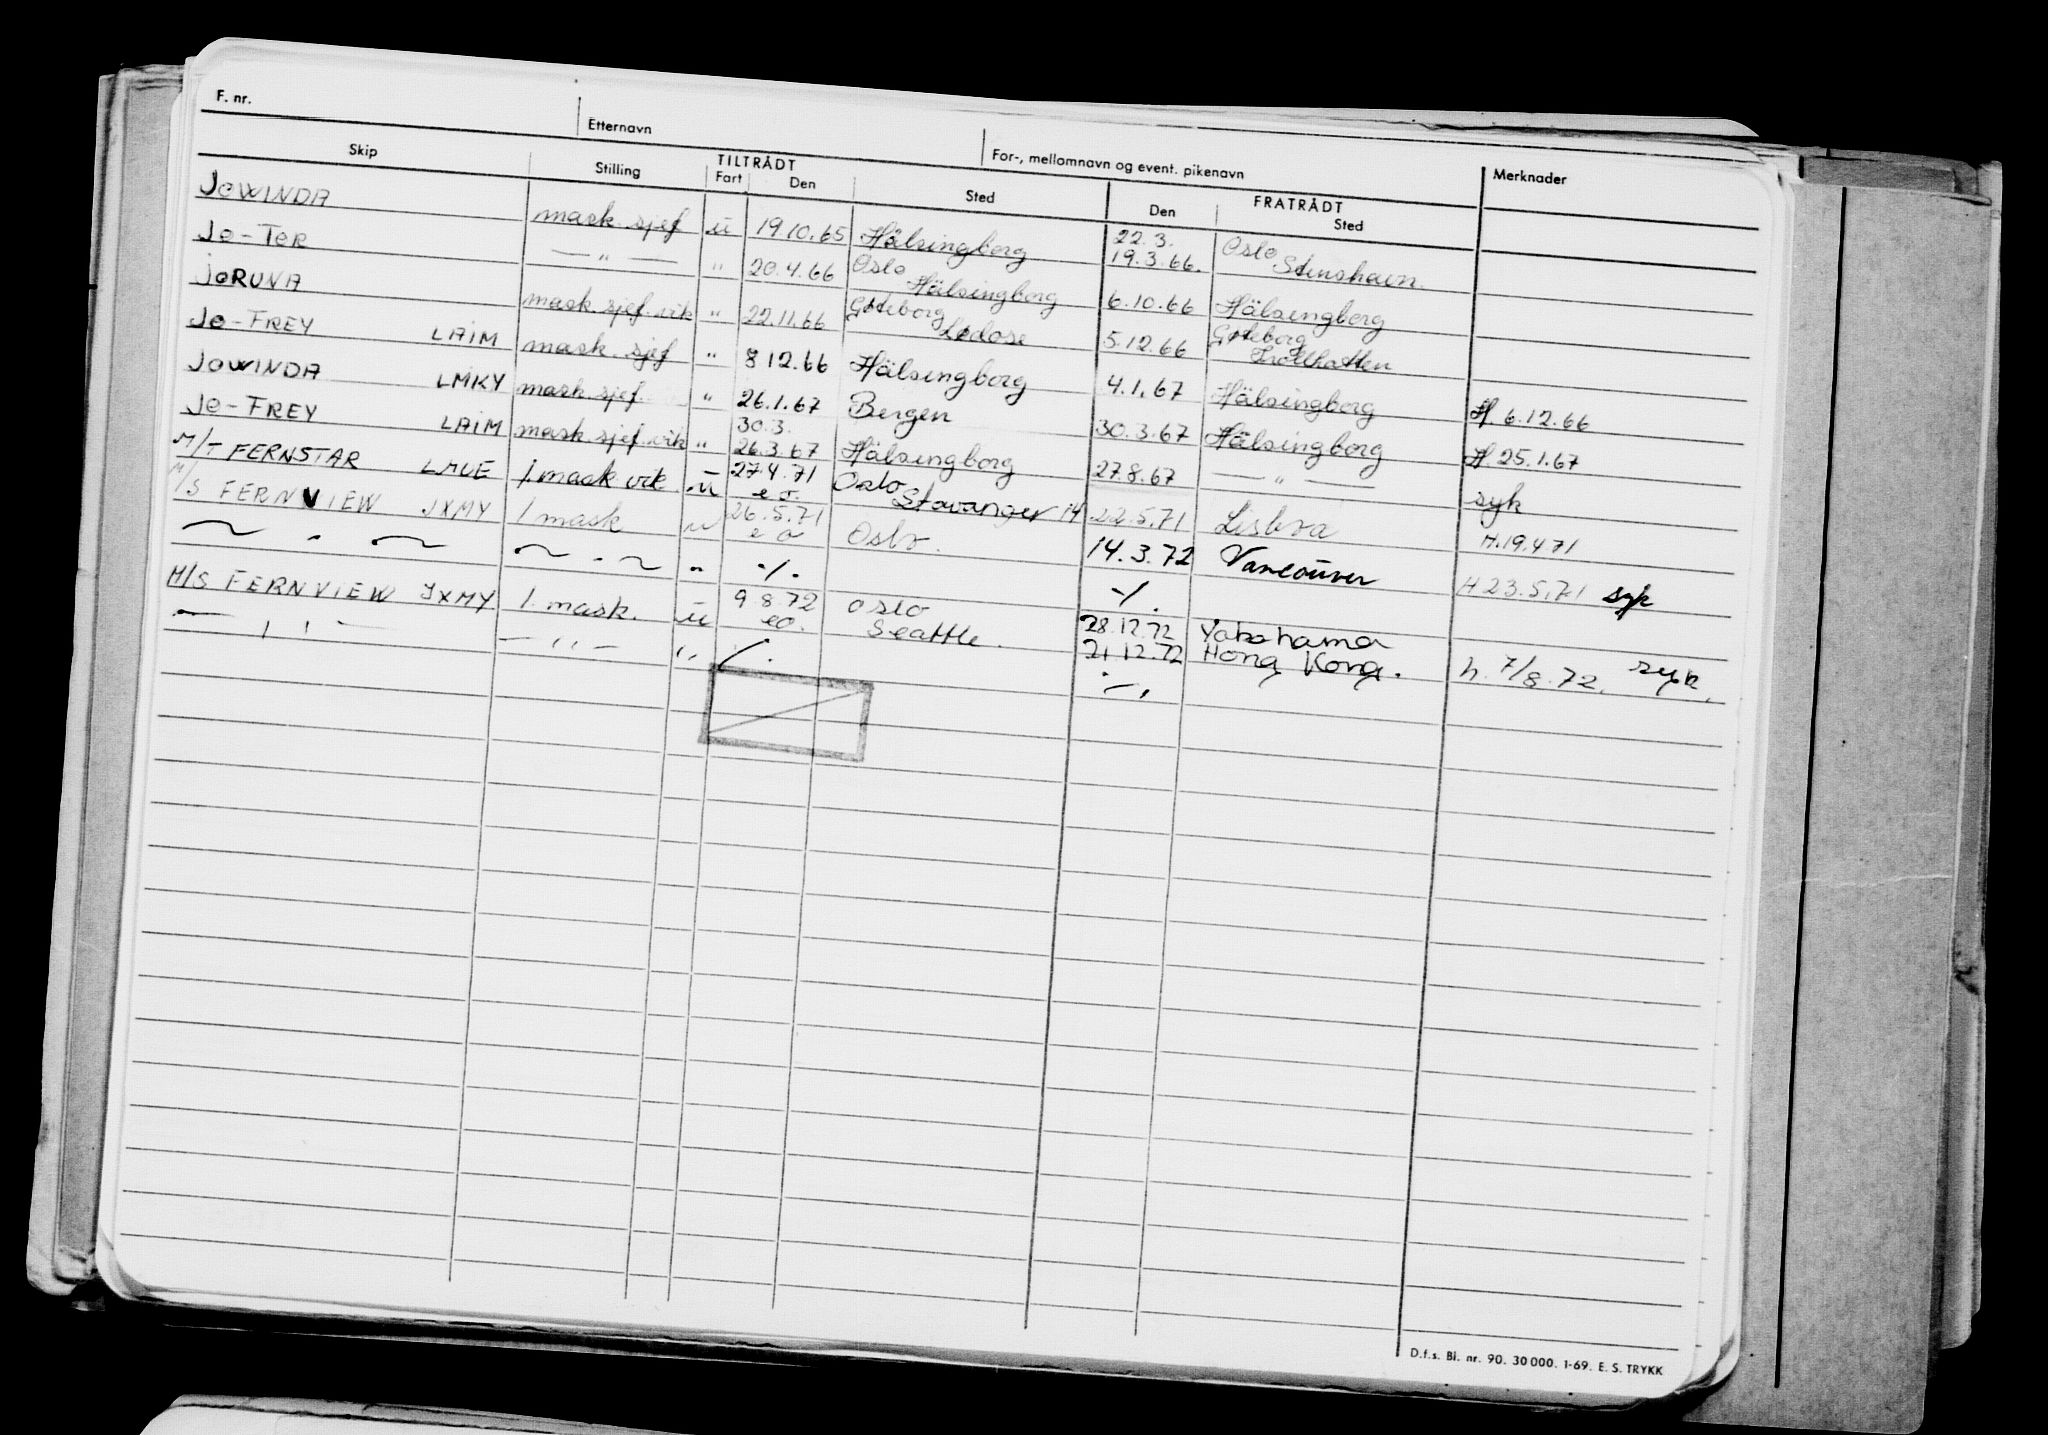 F. nr.
Etternavn
For-, mellomnavn og event. pikenavn
Skip
Stilling
TILTRÅDT
Fart
Den
Sted
FRATRÅDT
Den
Sted
Merknader
JOWINDA mask. sjef ü 19 10.65 Hälsingborg 22.3. 19.3.66. Oslo
JO-TER — " — " 20.4.66 Oslo Hälsingborg 6.10.66 Hälsingborg
JORUNA mask. sjef. vik " 22.11.66 Göteborg Lödose 5.12.66 Göteborg Trollhatten
JO-FREY LAIM mask. sjef " 8 12.66 Hälsingborg 4.1.67 Hälsingborg H. 6.12.66
JOWINDA LMKY mask. sjef. " 26.1.67 Bergen 30.3.67 Hälsingborg H. 25.1.67
JO-FREY LAIM mask. sjef. vik " 30.3. 26.3.67 Hälsingborg 27.8.67 — " — syk
M/T FERNSTAR 1. mask vik ü 27.4.71 e.o. Oslo Stavanger 14 22.5.71 Lisboa H. 19.4.71
M/S FERNVIEW JXMY 1 mask u 26.5.71 e o Oslo. 14.3.72 Vancouver H 23.5.71 syk
~ " ~ ~ . ~ " ./. ./.
M/S FERNVIEW JXMY 1. mask. ü 9 8.72 eo. Oslo Seattle. 28.12.72 Yokohama 21 12.72 Hong Kong. h. 7/8.72. syk.
— ' ' — — '' — '' ./. ./.
D.f.s. Bl. nr. 90. 30 000. 1-69. E. S. TRYKK